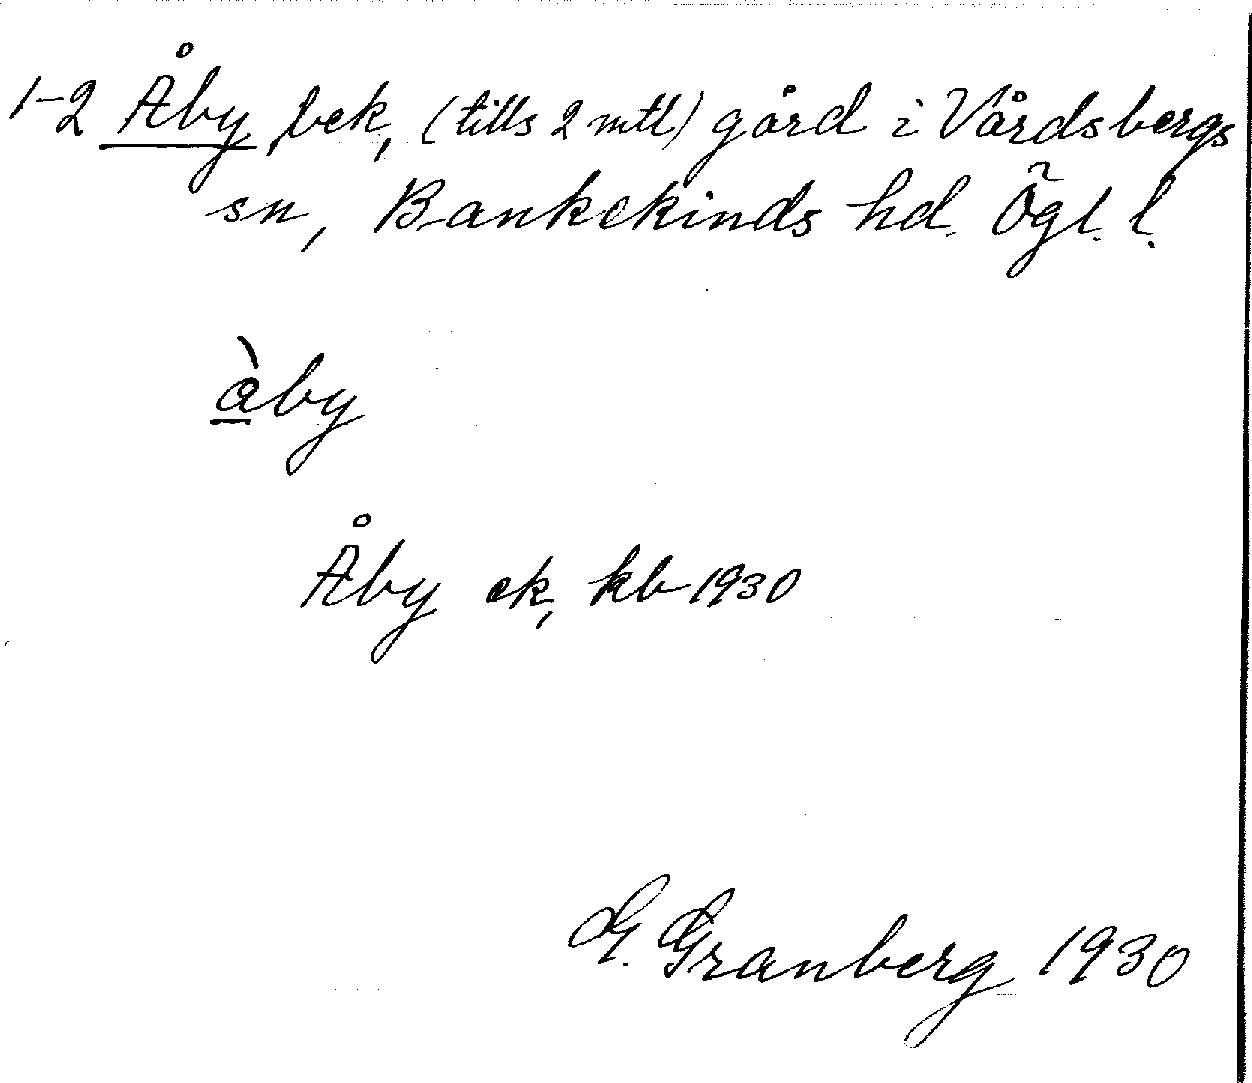 1-2 Åby, bek, (tills 2 mtl) gård i Vårdsbergs
sn, Bankekinds hd. Ögl. l.
àby
Åby ek, kb 1930
G. Granberg 1930